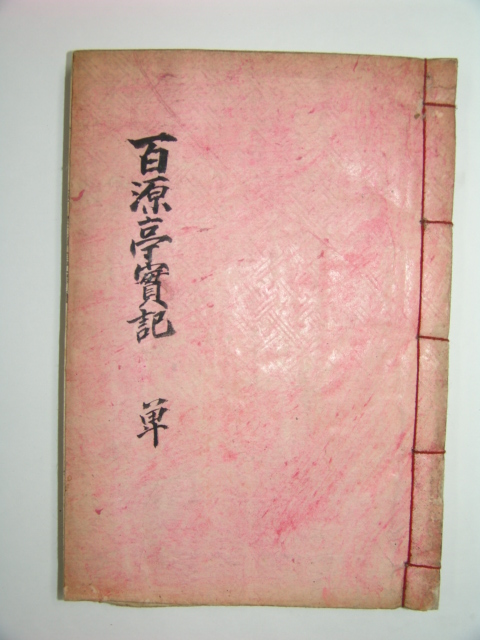 百源亭實記 単